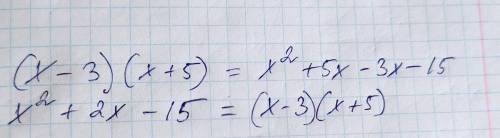 (x - 3)(x + 5) = x² + 5x - 3x - 15
x² + 2x - 15 = (x - 3)(x + 5)